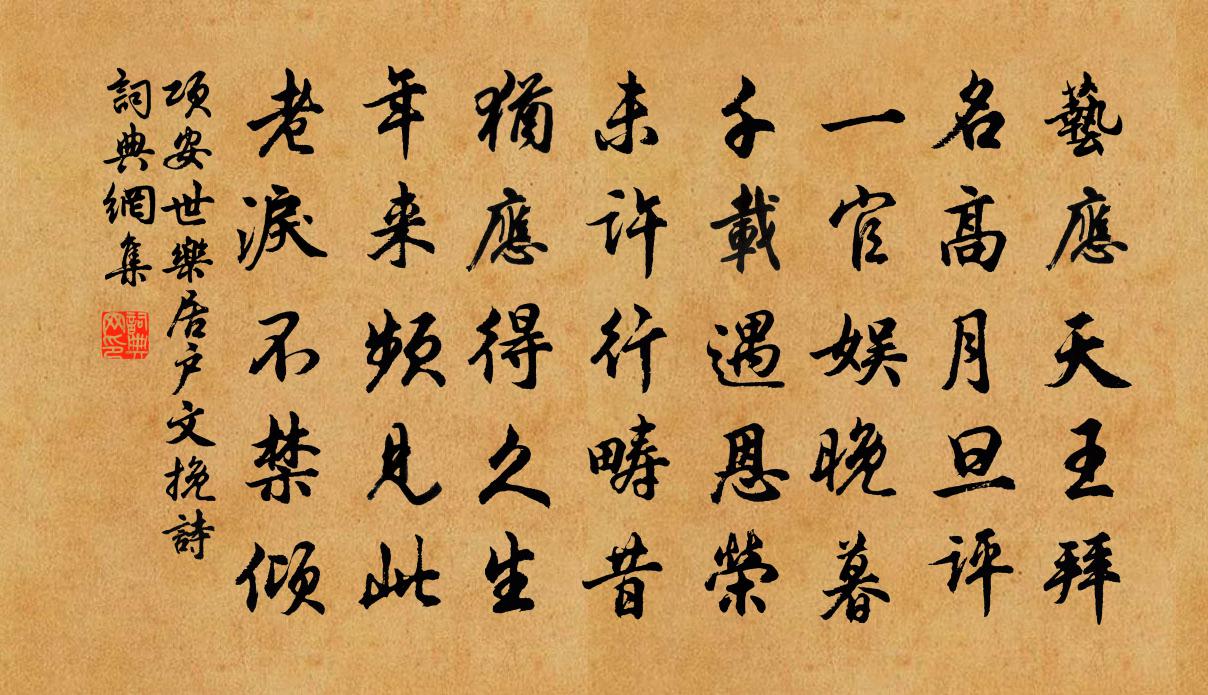 藝應天王拜
名高月旦評
一官娱晚暮
千載遇恩榮
未許行疇昔
猶應得久生
年来頻見此
老淚不禁傾
項安世樂居户文挽詩
詞典網集
詞典网印